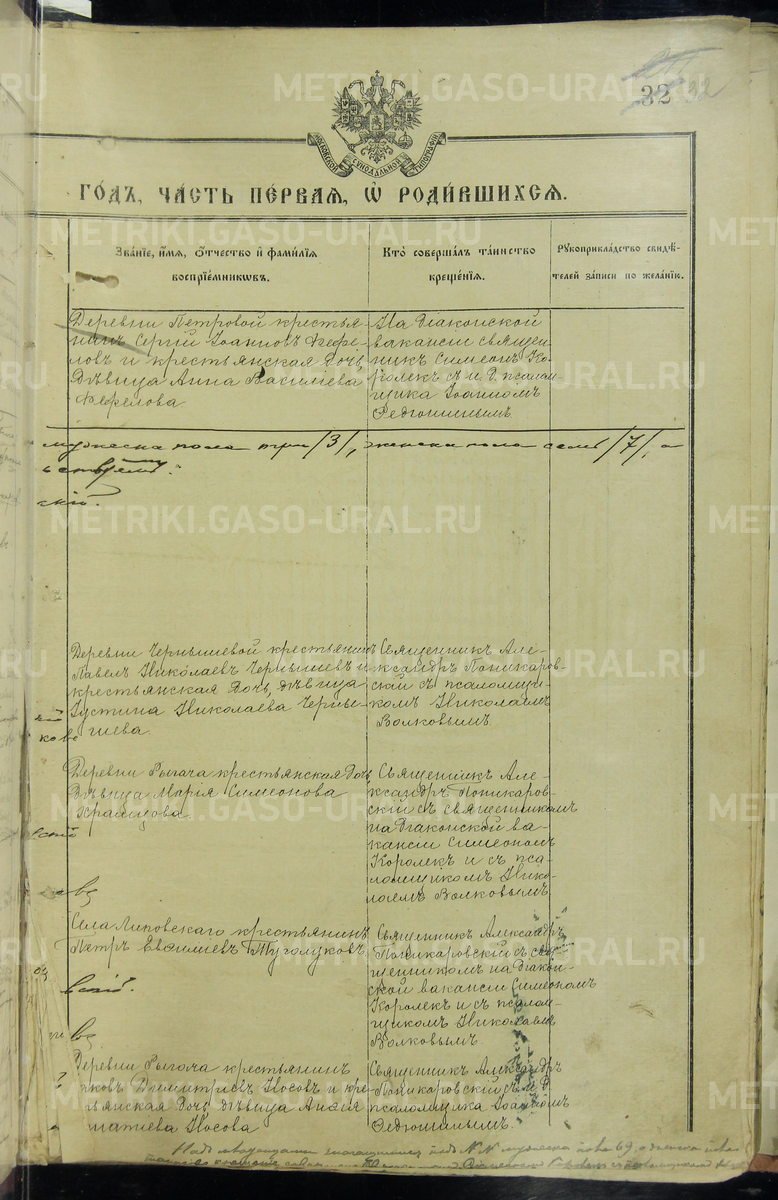 METRIKI.GASO-URAL.RU
32 32
МОСКОВСКОЙ СѴНОДАЛЬНОЙ ТИПОГРАФІИ
ГОДЪ, ЧАСТЬ ПЕРВАЯ, Ѡ РОДИВШИХСЯ.
Званіе, имя, отчество и фамилія
воспріемниковъ.
Кто совершалъ таинство
крещенія.
Рукоприкладство свидѣ-
телей записи по желанію.
Деревни Петровой крестья-
нинъ Сергій Іоанновъ Фефи-
ловъ и крестьянская дочь,
дѣвица Анна Василіева
Фефелова
На діаконской
вакансіи священ-
никъ Симеонъ Ко-
ролекъ съ и. д. псалом-
щика Іоанномъ
Федюшинымъ
мужеска пола три /3/, женска пола семь /7/, а
скій.
METRIKI.GASO-URAL.RU
Деревни Чернышевой крестьянинъ
Павелъ Николаевъ Чернышевъ и
крестьянская дочь, дѣвица
Іустина Николаева Черны-
шева.
Священникъ Але-
ксандръ Поникаров-
скій съ псаломщи-
комъ Николаемъ
Волковымъ
Деревни Рычача крестьянская дочь,
дѣвица Марія Симеонова
Храмцова.
Священникъ Але-
ксандръ Поникаров-
скій съ священникомъ
на діаконской ва-
кансіи Симеономъ
Королекъ и съ пса-
ломщикомъ Нико-
лаемъ Волковымъ
Села Липовскаго крестьянинъ
Петръ Евсиліевъ Туголуковъ
Священникъ Александръ
Поникаровскій съ свя-
щенникомъ на діакон-
ской вакансіи Симеономъ
Королекъ и съ псалом-
щикомъ Николаемъ
Волковымъ
вскій.
Деревни Рычача крестьянинъ
Іаковъ Димитріевъ Носовъ и кре-
стьянская дочь, дѣвица
Носова
Священникъ Александръ
Поникаровскій съ и. д.
псаломщика Іоанномъ
Федюшинымъ.
METRIKI.GASO-URAL.RU